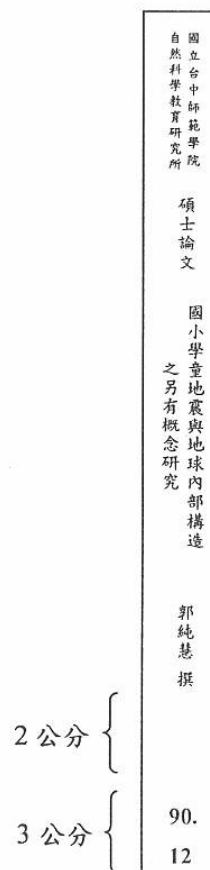 國立台中師範學院
自然科學教育研究所
碩士論文
國小學童地震與地球內部構造
之另有概念研究
郭純慧 撰
2 公分
3 公分
90.
12